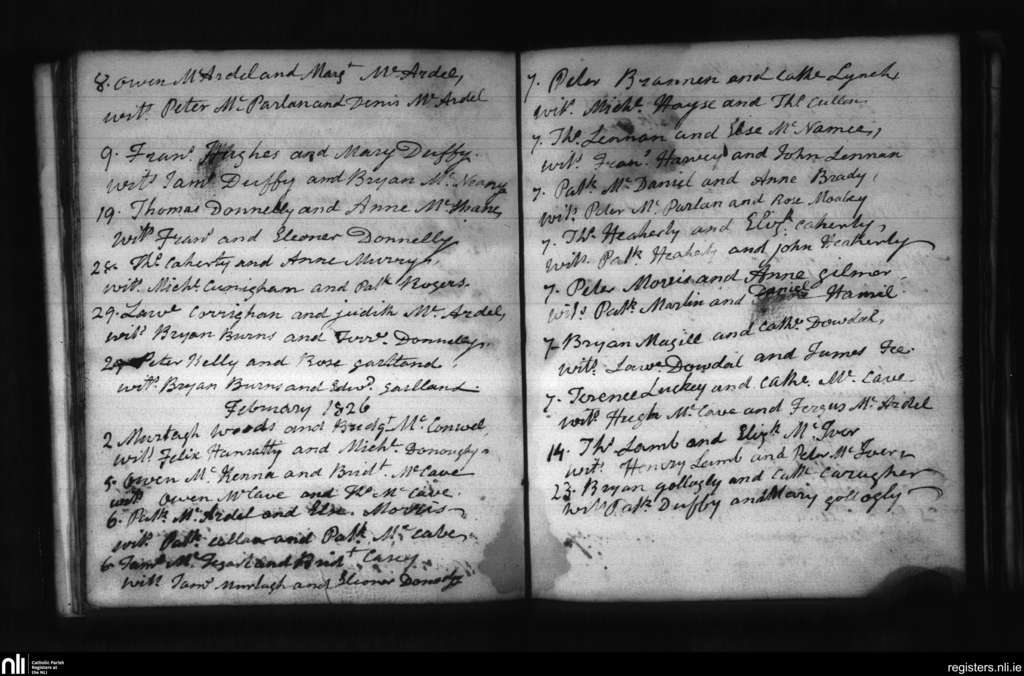 8. Owen McArdel and Margt McArdel,
witS Peter McParlan and Denis McArdel
9. FranS Hughes and Mary Duffy.
witS JamS Duffy and Bryan Mc
19. Thomas Donnelly and Anne McShane,
witS FranS and Eleoner Donnelly
28. ThS Caherty and Anne Murry,
witS Michl Cunigham and Patk Rogers.
29. Lawe Corrighan and judith McArdel,
witS Bryan Burns and Donnelly,
29 Peter Kelly and Rose gartland.
witS Bryan Burns and Edwd. Gartland.
February 1826
2 Murtagh Woods and Bridgt McConwel,
witS Felix Hanratty and Michl Donoughy
5. Owen McKenna and Bridt McCave
witS Owen McCave and ThS McCave.
6. Patk McArdel and Else Morris
witS Patk Callan and Patk McCabe,
6 JamS Mc and Bridt Casey
witS JamS Murtagh and Eleoner
7. Peter Brannen and Cathe Lynch,
witS Michl Hayse and ThS Cullen.
7. ThS Lennan and Else McNamee,
witS FranS Harvey and John Lennan
7. Patk McDaniel and Anne Brady,
witS Peter McParlan and Rose
7. ThS Heaherty and Elizh Caherty,
witS Patk Heaherty and john Heaherty
7. Peter Morris and Anne gilmer.
witS Patk Martin and Daniel Hamil
7 Bryan Magill and Cathe Dowdal,
witS Lawe Dowdal and James Fee.
7. Terence Luckey and Cathe McCave.
witS Hugh McCave and Fergus McArdel
14. ThS Lamb and Elizh McIver
witS Henry Lamb and Peter McIver
23. Bryan gollogly and Cathe Carragher
witS Patk Duffy and Mary gollogly
nli
Catholic Parish
Registers at
the NLI
registers.nli.ie